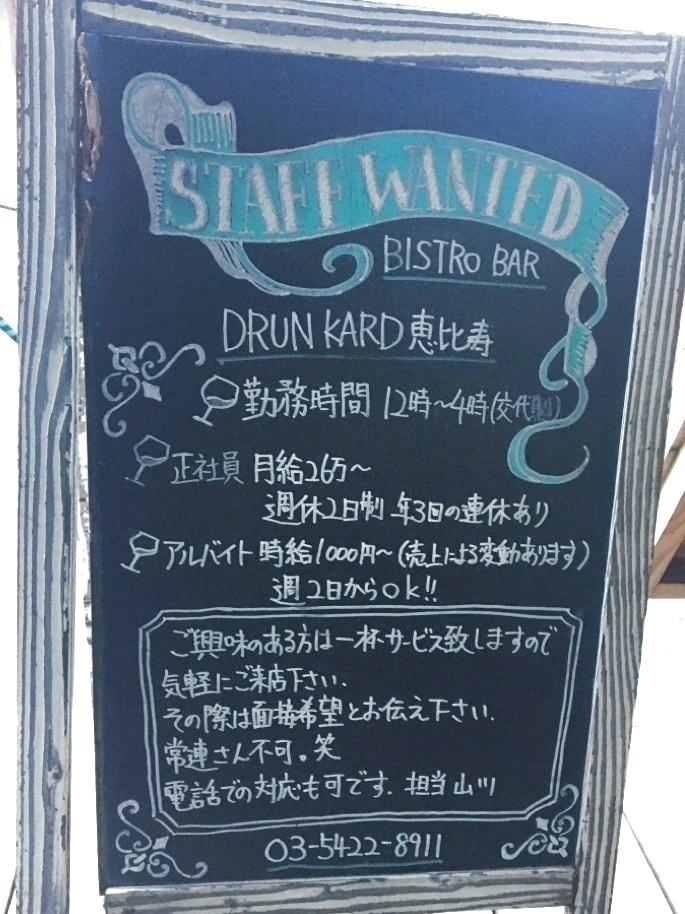 STAFF WANTED
BISTRO BAR
DRUNKARD 恵比寿
勤務時間 12時～4時(交代制)
正社員 月給26万～
週休2日制 年3回の連休あり
アルバイト 時給1000円～(売上による変動あります)
週2日からok!!
ご興味のある方は一杯サービス致しますので
気軽にご来店下さい.
その際は面接希望とお伝え下さい.
常連さん不可。笑
電話での対応も可です. 担当 山川
03-5422-8911